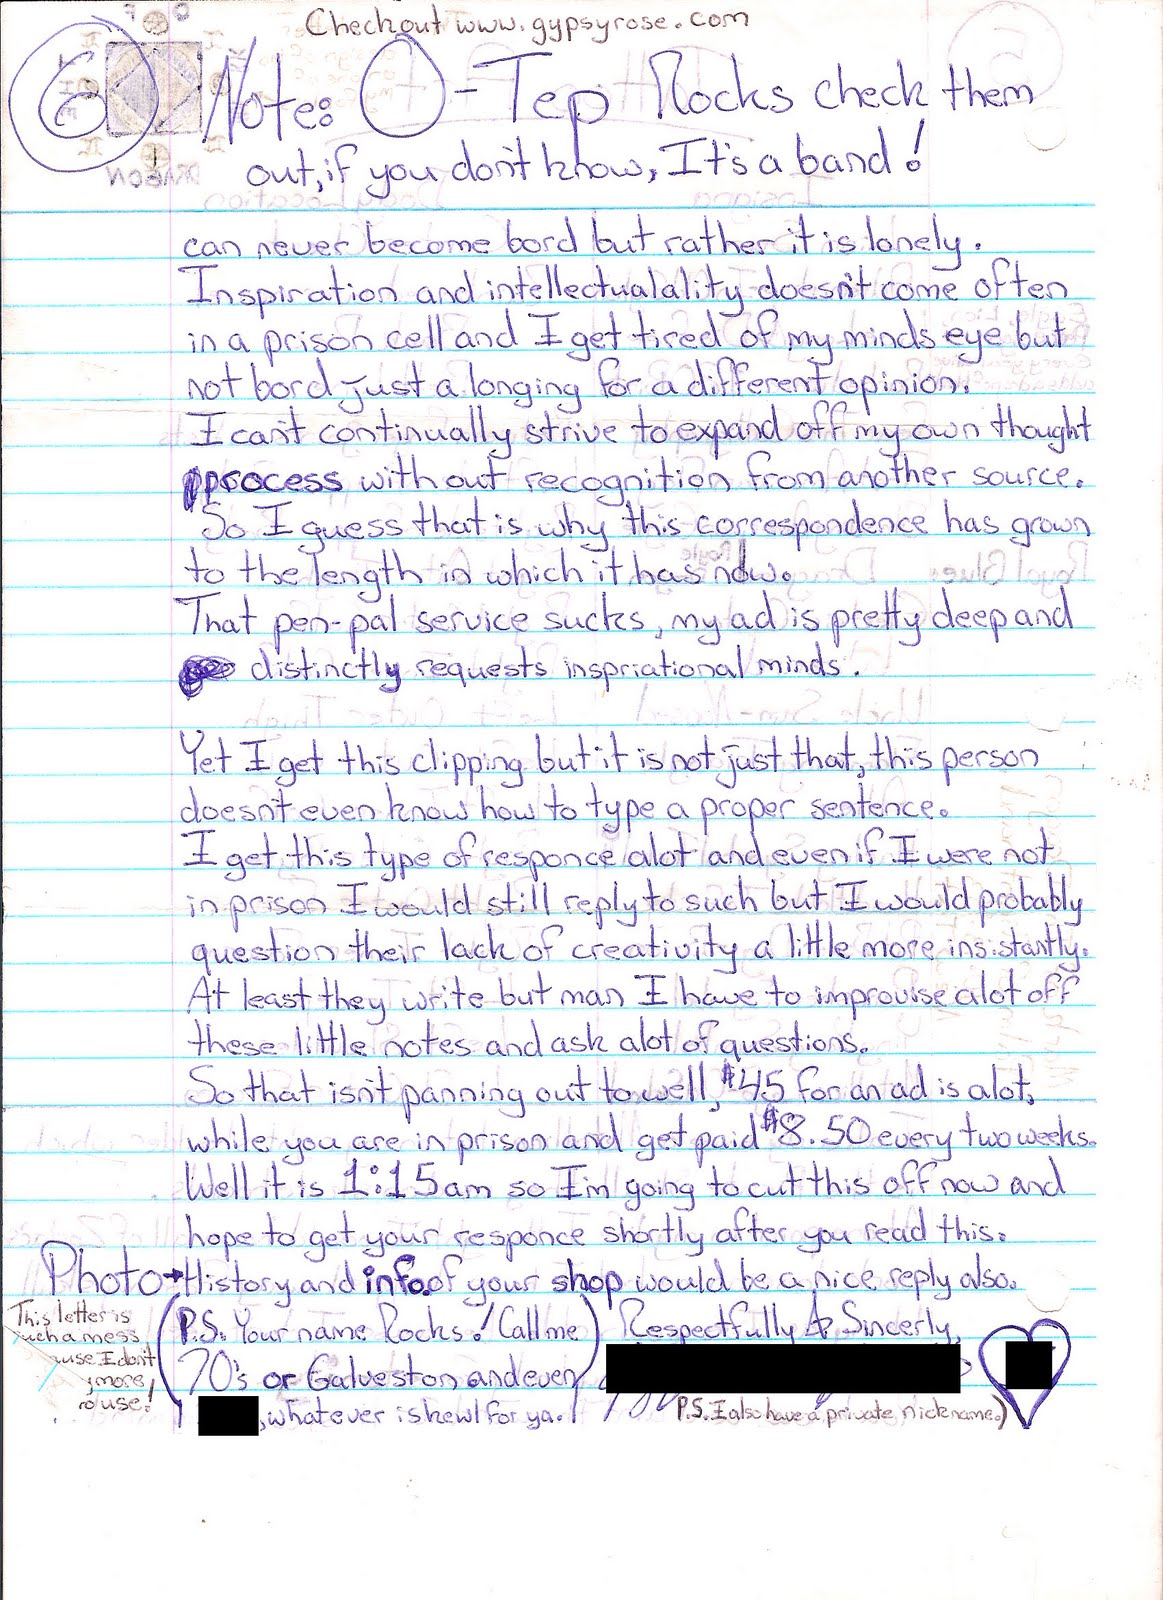 Checkout www.gypsyrose.com
6 Note: O-Tep Rocks check them
out, if you don't know, It's a band!
DRAGON
can never become bord but rather it is lonely.
Inspiration and intellectualality doesn't come often
in a prison cell and I get tired of my minds eye but
not bord just a longing for a different opinion.
I can't continually strive to expand off my own thought
process without recognition from another source.
So I guess that is why this correspondence has grown
to the length in which it has now.
That pen-pal service sucks, my ad is pretty deep and
distinctly requests inspriational minds.
Yet I get this clipping but it is not just that, this person
doesn't even know how to type a proper sentence.
I get this type of responce alot and even if I were not
in prison I would still reply to such but I would probably
question their lack of creativity a little more insistantly.
At least they write but man I have to improvise alot off
these little notes and ask alot of questions.
So that isn't panning out to well, $45 for an ad is alot,
while you are in prison and get paid $8.50 every two weeks.
Well it is 1:15am so I'm going to cut this off now and
hope to get your responce shortly after you read this.
Photo→History and info. of your shop would be a nice reply also.
This letter is
such a mess
I don't
more
(P.S. Your name Rocks! Call me
70's or Galveston and even
, whatever is kewl for ya.)
Respectfully & Sincerly,
P.S. I also have a private nickname.)